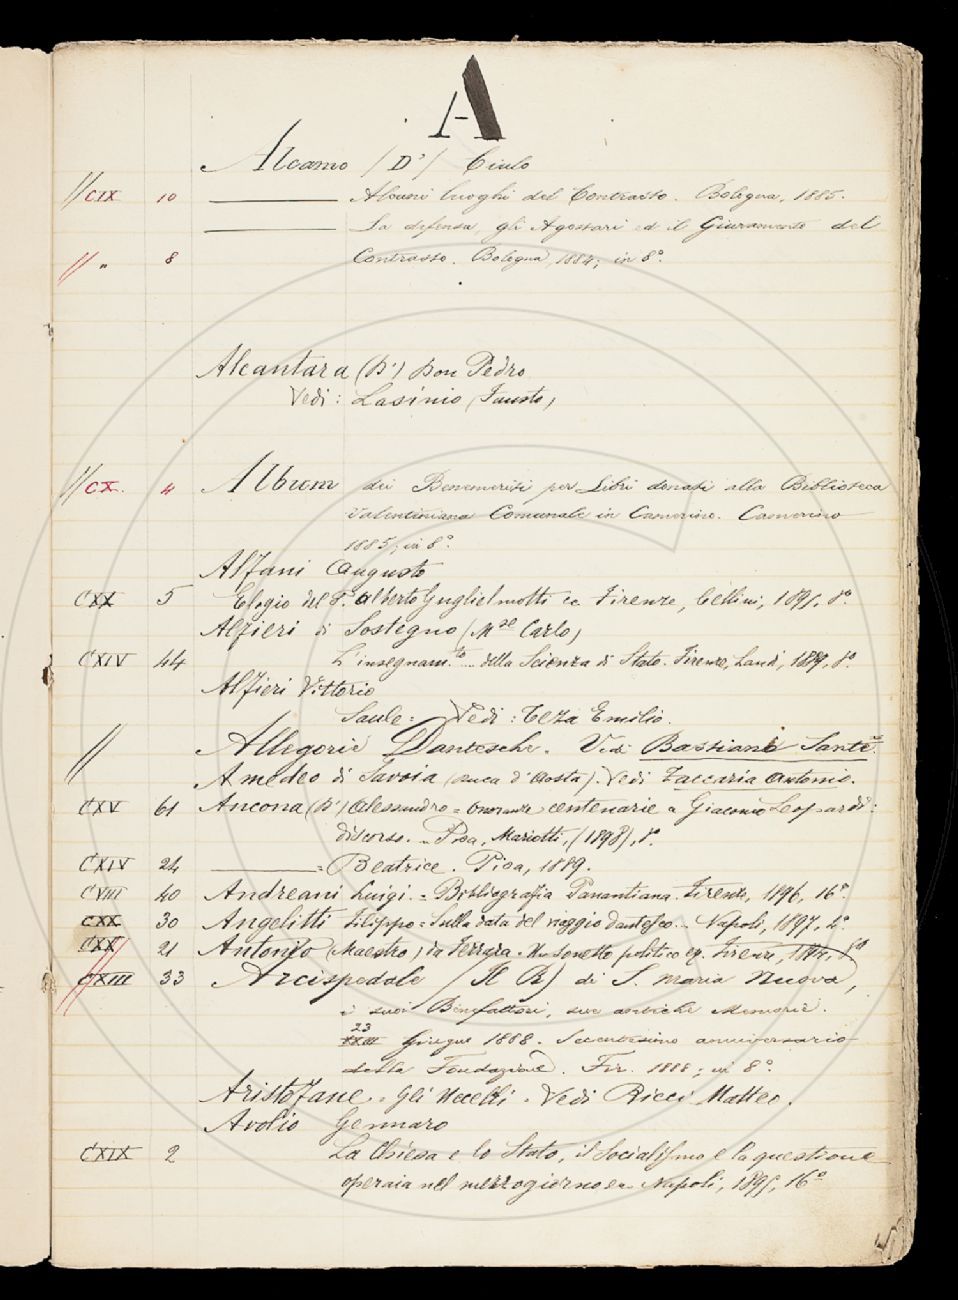 A
Alcamo (D') Ciulo
// CIX 10 Alcuni luoghi del Contrasto. Bologna, 1885.
La defensa, gli Agostari ed il Giuramento del
// " 8 Contrasto. Bologna, 1884; in 8°.
Alcantara (D') Don Pedro
Vedi: Lasinio (Fausto)
// CX. 4 Album dei Benemeriti per Libri donati alla Biblioteca
Valentiniana Comunale in Camerino. Camerino
1885, in 8°.
Alfani Augusto
CXX 5 Elogio del P. Alberto Guglielmotti ec. Firenze, Cellini, 8°.
Alfieri di Sostegno (Mse Carlo)
CXIV 44 L'insegnam.to ... della Scienza di Stato. Firenze, Landi, 8°.
Alfieri Vittorio
Saule = Vedi: Teza Emilio.
// Allegorie Dantesche. Vedi Bassiani Sante.
Amedeo di Savoia (Duca d'Aosta). Vedi Zaccaria Antonio.
CXV 61 Ancona (D') Alessandro = Onoranze centenarie a Giacomo Leopardi:
discorso. - Pisa, Mariotti, (1898), 8°.
CXIV 24 = Beatrice. Pisa, 1889.
CVIII 40 Andreani Luigi. = Bibliografia Panantiana. Firenze, 1896, 16°.
CXX 30 Angelitti Filippo = Sulla data del viaggio dantesco... Napoli, 1897, 4°.
CXX 21 Antonio (Maestro) da Ferrara. Un Sonetto politico ec. Firenze,
CXIII 33 Arcispedale (Il R) di S. Maria Nuova,
i suoi Benefattori, sue antiche Memorie.
23
XXIII Giugno 1888. Secentesimo anniversario
della Fondazione. Fir. 1888; in 8°
Aristofane. Gli Uccelli. Vedi Ricci Matteo.
Avolio Gennaro
CXIX 2 La Chiesa e lo Stato, il Socialismo e la questione
operaia nel mezzogiorno ec. Napoli, 16°